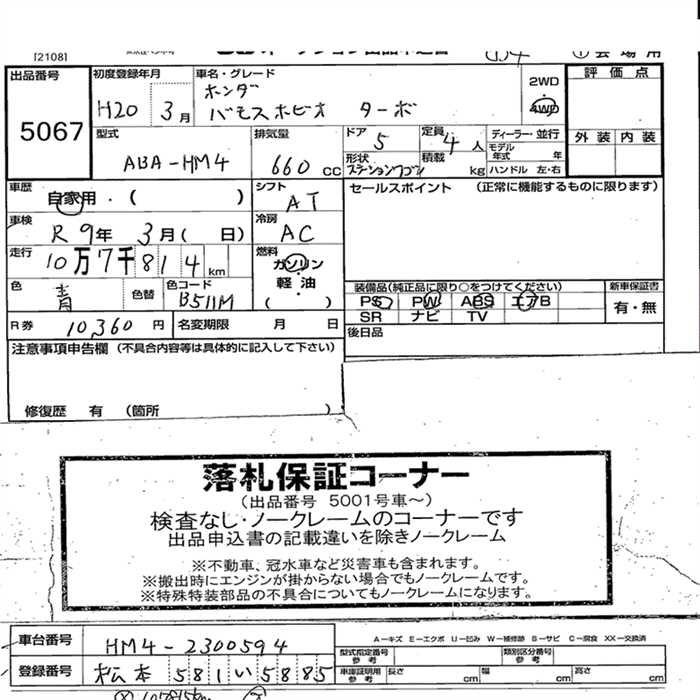 [2108]
出品番号 初度登録年月 車名・グレード 2WD 評価点
5067 H20 3月 ホンダ ・
バモスホビオ ターボ 4WD
型式 排気量 ドア 定員 ディーラー・並行 外装 内装
ABA-HM4 660cc 5 4人 モデル年式 年
形状 ステーションワゴン 積載 kg ハンドル 左・右
車歴 自家用・( ) シフト AT セールスポイント (正常に機能するものに限ります)
車検 R9年 3月( 日) 冷房 AC
走行 10万7千814km 燃料 ガソリン・軽油( )
色 青 色替 色コード B511M 装備品(純正品に限り○をつけてください) 新車保証書
PS PW ABS エアB 有・無
SR ナビ TV
R券 10,360円 名変期限 月 日 後日品
注意事項申告欄 (不具合内容等は具体的に記入して下さい)
修復歴 有 (箇所 )
落札保証コーナー
(出品番号 5001号車～)
検査なし・ノークレームのコーナーです
出品申込書の記載違いを除きノークレーム
※不動車、冠水車など災害車も含まれます。
※搬出時にエンジンが掛からない場合でもノークレームです。
※特殊特装部品の不具合についてもノークレームになります。
車台番号 HM4-2300594 A－キズ E－エクボ U－凹み W－補修跡 S－サビ C－腐食 XX－交換済
型式指定番号 参考 類別区分番号 参考
登録番号 松本 581 い 5885 車庫証明用 参考 長さ cm 幅 cm 高さ cm